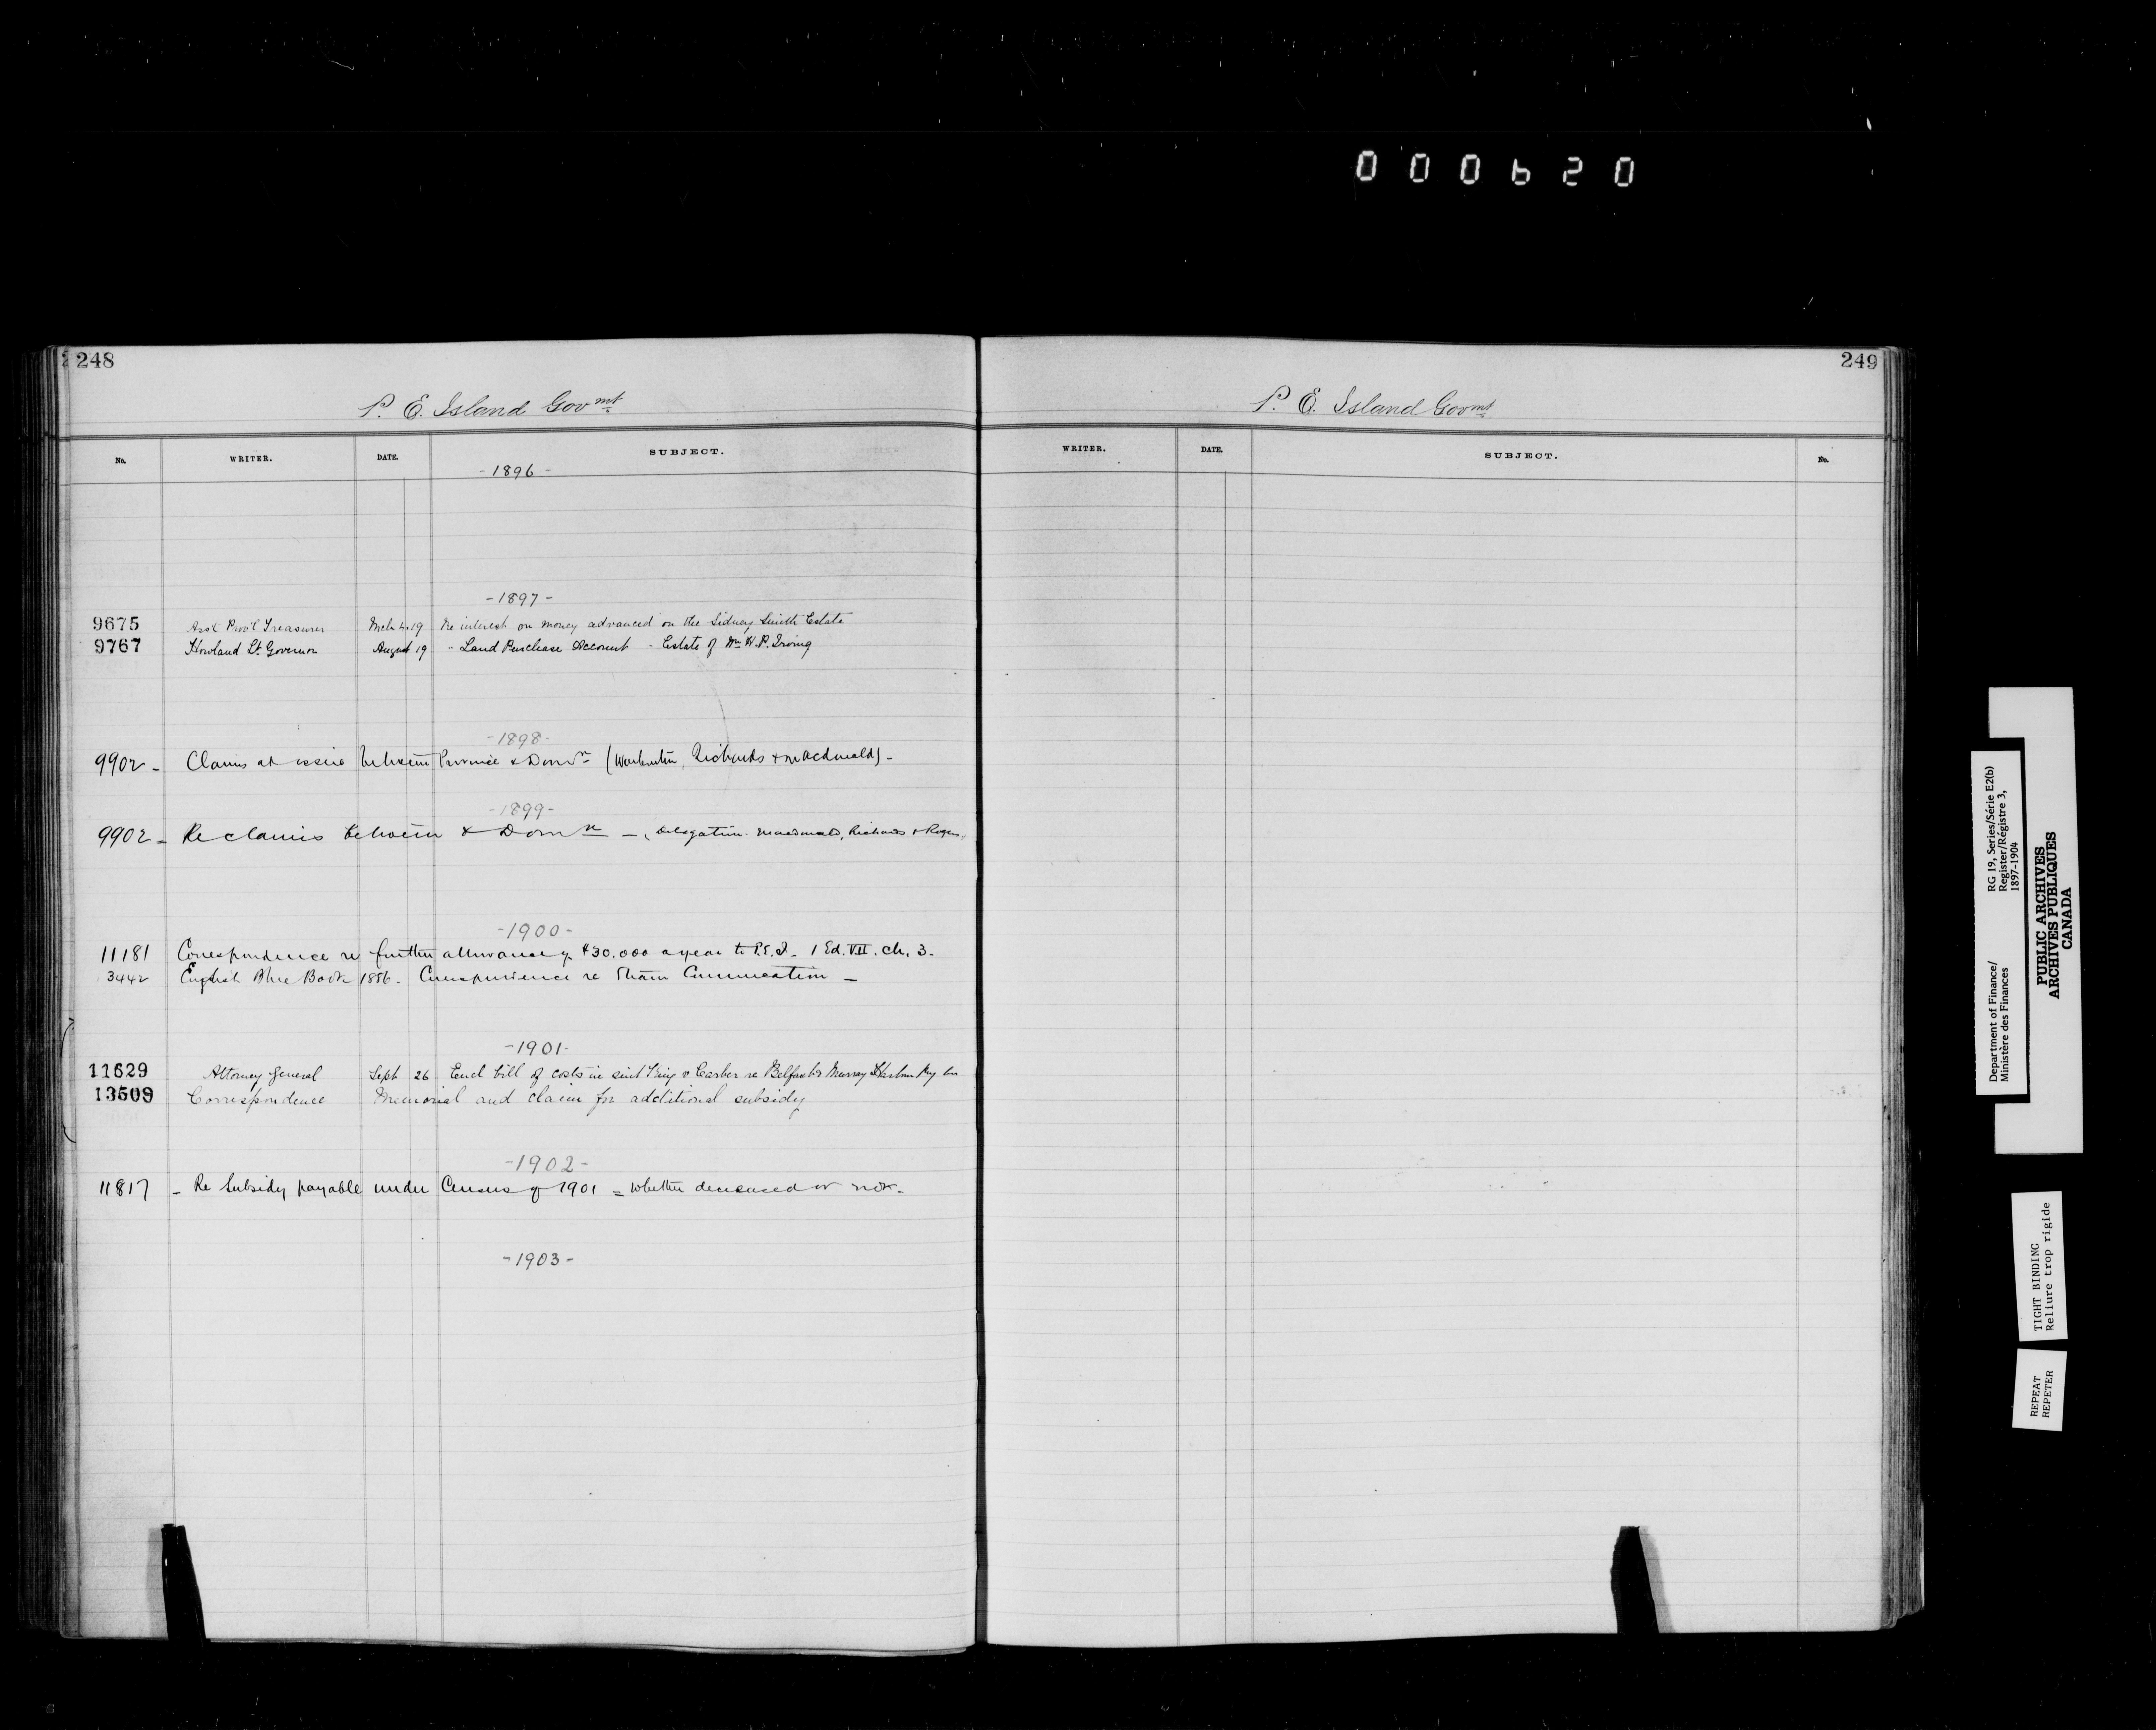 000620
248
P. E. Island Govmt
No. WRITER. DATE. SUBJECT.
-1896-
-1897-
9675 Asst Prov'l Treasurer Mch 4.19 Re interest on money advanced on the Sidney Smith Estate
9767 Howland Lt. Governor August 19 " Land Purchase Account - Estate of Wm. H. P. Irving
-1898-
9902 - Claims at issue between Province & Domn (Warburton, Richards & Macdonald) -
-1899-
9902 - Re claims between & Domn - (Delegation. Macdonald, Richards & Rogers)
-1900-
11181 Correspondence re further allowance of $30,000 a year to P.E.I. 1 Ed. VII. ch. 3.
3442 English Blue Book 1886. Correspondence re Steam Communication -
-1901-
11629 Attorney General Sept 26 Encl bill of costs in suit King v Carter re Belfast & Murray Harbor Ry
13509 Correspondence Memorial and claim for additional subsidy
-1902-
11817 - Re Subsidy payable under Census of 1901 = whether decreased or not -
-1903-
249
P. E. Island Govmt
WRITER. DATE. SUBJECT. No.
Department of Finance/ RG 19, Series/Série E2(b)
Ministère des Finances Register/Régistre 3,
1897-1904
PUBLIC ARCHIVES
ARCHIVES PUBLIQUES
CANADA
TIGHT BINDING
Reliure trop rigide
REPEAT
REPETER